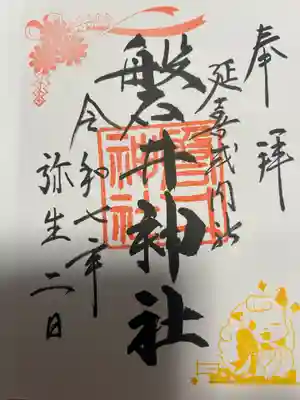 奉拝
延喜式内社
磐井神社
令和七年
弥生二日